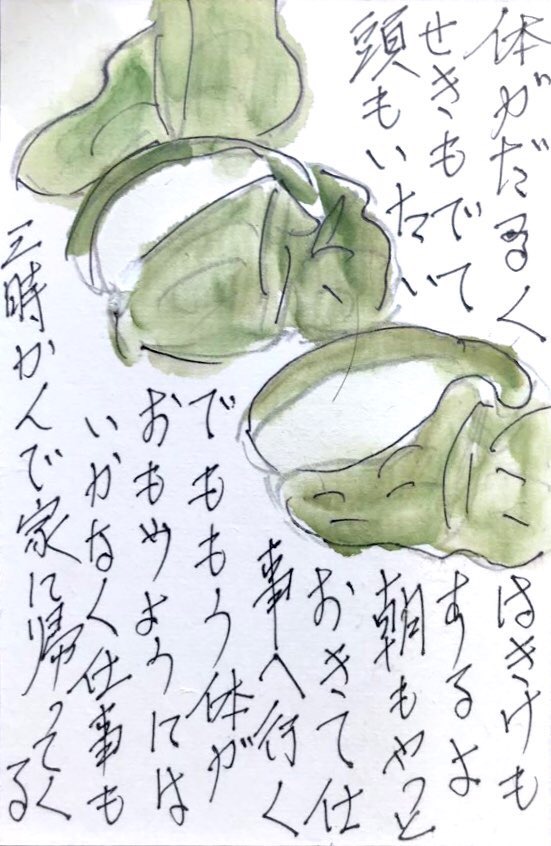 体がだるく
せきもでて
頭もいたい
はきけも
あるよ
朝もやっと
おきて仕
事へ行く
でももう体が
おもやようには
いかなく仕事も
三時かんで家に帰ってくる